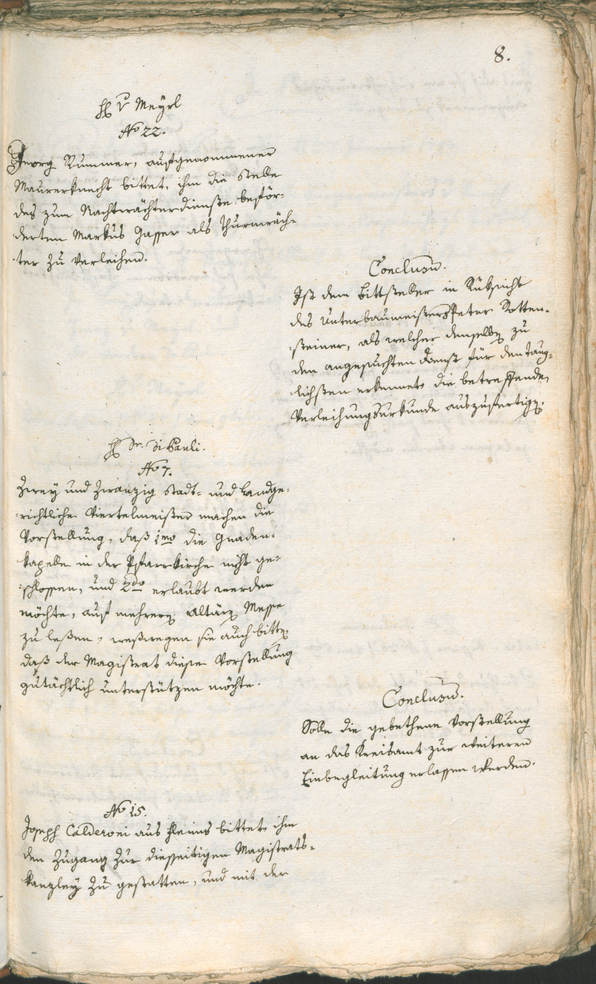 8.
H v Meyrl
No 22.
Georg Rummer, aufgenommener
Maurerknecht bittet, ihm die Stelle
des zum Nachtwächterdienste beför-
derten Markus Gasser als Thurmwäch-
ter zu verleihen.
Conclusum.
Ist dem Bittsteller in Rüksicht
des Unterbaumeisters Peter Rotten-
steiner, als welcher denselben zu
dem angesuchten Dienst für den täug-
lichsten erkennet die betreffende
Verleihungsurkunde auszufertigen.
H Dr. Di Pauli.
No 7.
Zwey und zwanzig Stadt- und Landge-
richtliche Viertelmeister machen die
Vorstellung, daß 1mo die Gnaden-
kapelle in der Pfarrkirche nicht ge-
schlossen, und 2do erlaubt werden
möchte, auf mehreren Altären Messe
zu lesen, weßwegen sie auch bitten
daß der Magistrat diese Vorstellung
gutächtlich unterstützen möchte.
Conclusum.
Solle die gebethene Vorstellung
an das Kreisamt zur weiteren
Einbegleitung erlassen werden.
No 15.
Joseph Calderoni aus Fleims bittet ihm
den Zugang zur diesseitigen Magistrats-
kanzley zu gestatten, und mit der